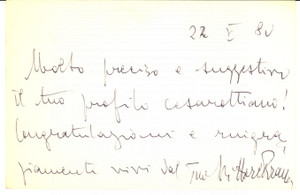 22 V 80
Molto preciso e suggestivo
il tuo profilo cesarettiano!
Congratulazioni e ringra
ziamenti vivi dal Tuo